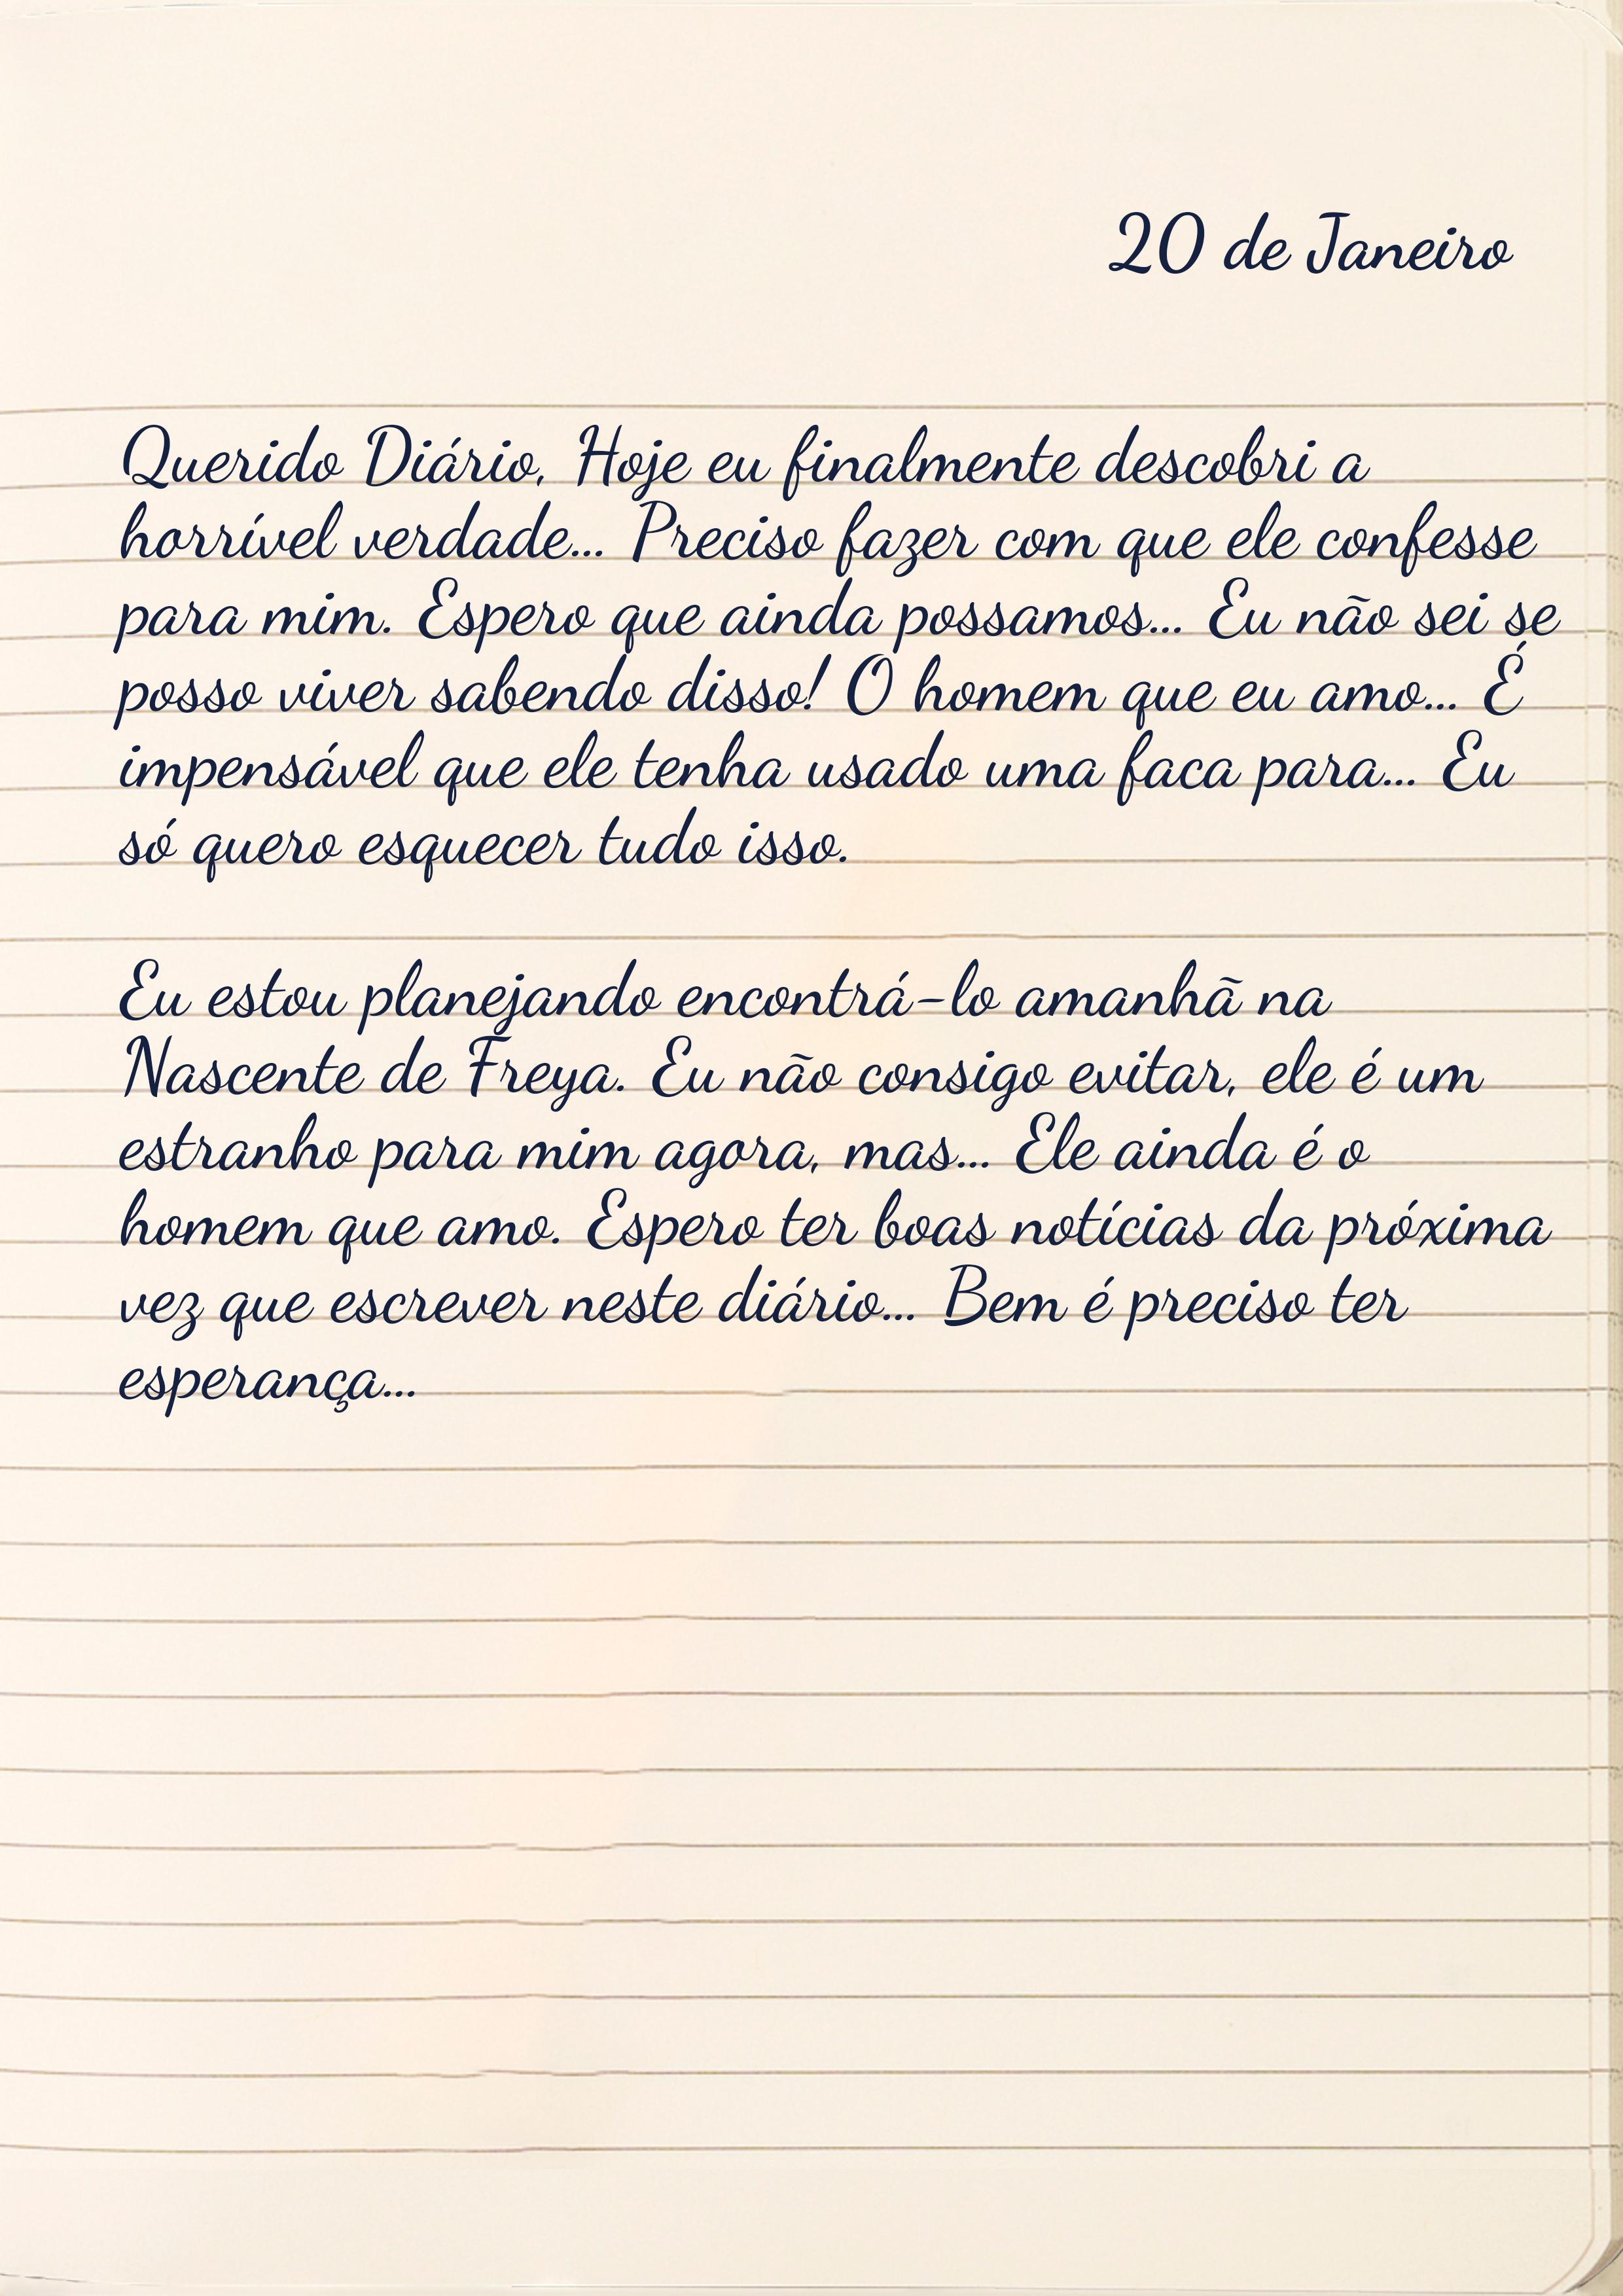 20 de Janeiro
Querido Diário, Hoje eu finalmente descobri a
horrível verdade... Preciso fazer com que ele confesse
para mim. Espero que ainda possamos... Eu não sei se
posso viver sabendo disso! O homem que eu amo... É
impensável que ele tenha usado uma faca para... Eu
só quero esquecer tudo isso.
Eu estou planejando encontrá-lo amanhã na
Nascente de Freya. Eu não consigo evitar, ele é um
estranho para mim agora, mas... Ele ainda é o
homem que amo. Espero ter boas notícias da próxima
vez que escrever neste diário... Bem é preciso ter
esperança...